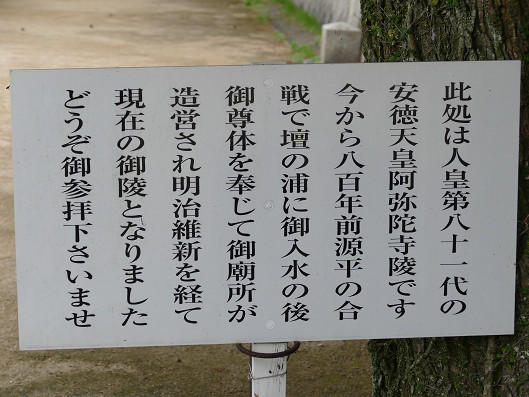 此処は人皇第八十一代の
安徳天皇阿弥陀寺陵です
今から八百年前源平の合
戦で壇の浦に御入水の後
御尊体を奉じて御廟所が
造営され明治維新を経て
現在の御陵となりました
どうぞ御参拝下さいませ